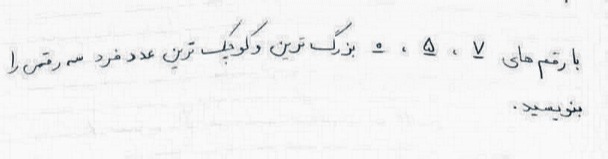 با رقم های ۷ ، ۵ ، ۰ بزرگ ترین و کوچک ترین عدد فرد سه رقمی را
بنویسید.